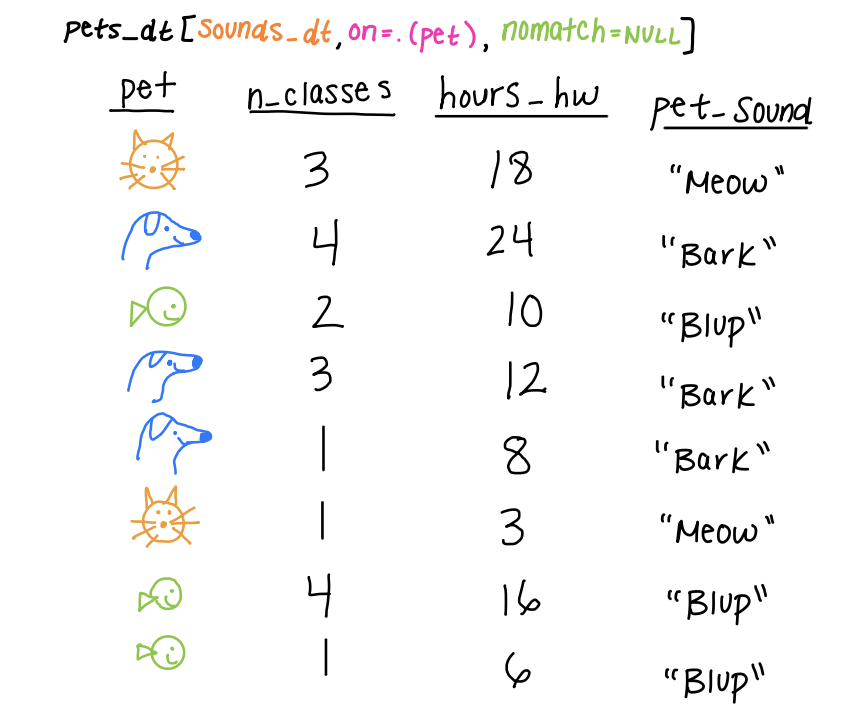 pets_dt[sounds_dt, on=.(pet), nomatch=NULL]
pet n_classes hours_hw pet_sound
3 18 "Meow"
4 24 "Bark"
2 10 "Blup"
3 12 "Bark"
1 8 "Bark"
1 3 "Meow"
4 16 "Blup"
1 6 "Blup"